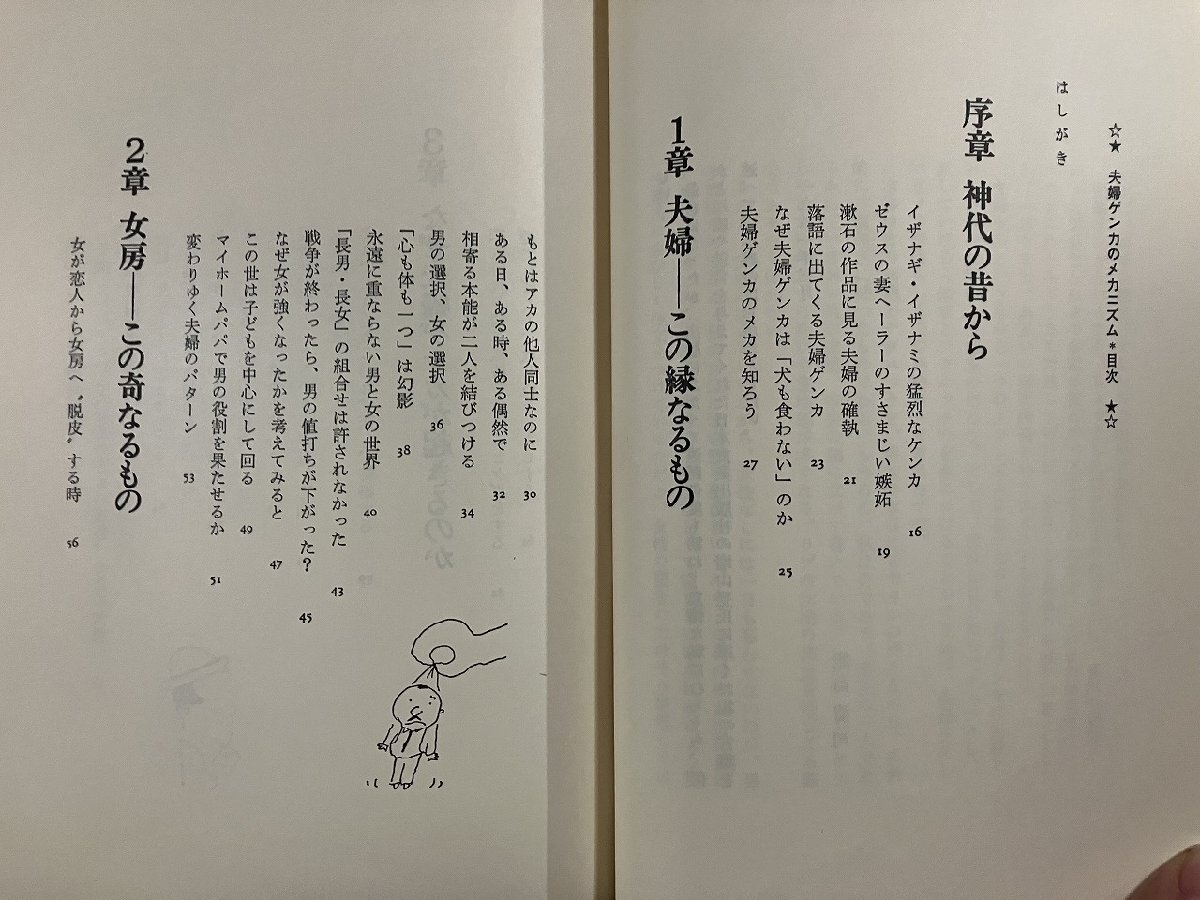 ☆★ 夫婦ゲンカのメカニズム*目次 ★☆
はしがき
序章 神代の昔から
イザナギ・イザナミの猛烈なケンカ 16
ゼウスの妻ヘーラーのすさまじい嫉妬 19
漱石の作品に見る夫婦の確執 21
落語に出てくる夫婦ゲンカ 23
なぜ夫婦ゲンカは「犬も食わない」のか 25
夫婦ゲンカのメカを知ろう 27
1章 夫婦――この縁なるもの
もとはアカの他人同士なのに 30
ある日、ある時、ある偶然で 32
相寄る本能が二人を結びつける 34
男の選択、女の選択 36
「心も体も一つ」は幻影 38
永遠に重ならない男と女の世界 40
「長男・長女」の組合せは許されなかった 43
戦争が終わったら、男の値打ちが下がった? 45
なぜ女が強くなったかを考えてみると 47
この世は子どもを中心にして回る 49
マイホームパパで男の役割を果たせるか 51
変わりゆく夫婦のパターン 53
2章 女房――この奇なるもの
女が恋人から女房へ〝脱皮〟する時 56